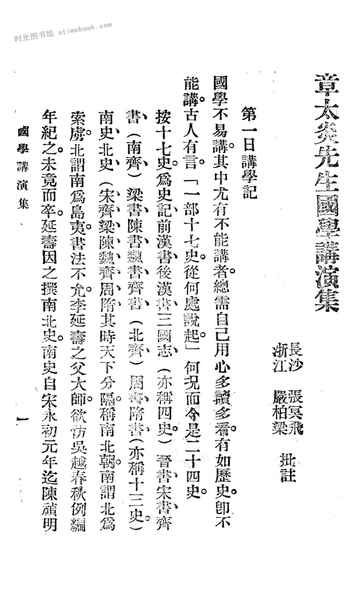 时光图书馆 atimebook.com
章太炎先生國學講演集
長沙 張冥飛
浙江 嚴柏梁 批註
第一日講學記
國學不易講。其中尤有不能講者。總需自己用心多讀多看。有如歷史。卽不
能講。古人有言。「一部十七史。從何處說起。」何况而今是二十四史。
按十七史。爲史記前漢書後漢書三國志(亦稱四史)晉書宋書齊
書(南齊)梁書陳書魏書齊書(北齊)周書隋書(亦稱十三史)
南史北史(宋齊梁陳魏齊周隋其時天下分隔。稱南北朝。南謂北爲
索虜。北謂南爲島夷。書法不允。李延壽之父大師。欲仿吳越春秋例編
年紀之。未竟而卒。延壽因之撰南北史。南史自宋永初元年。迄陳禎明
國學講演集
一